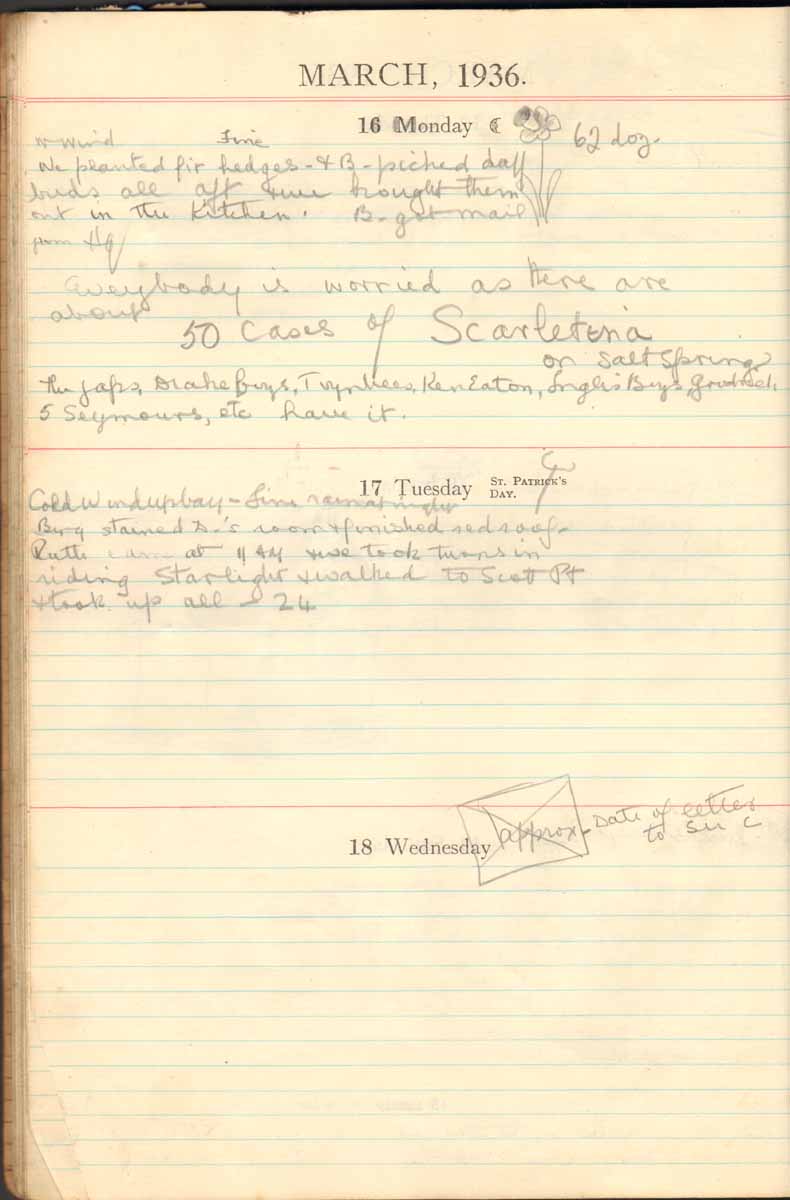 MARCH, 1936.
16 Monday 62 doz.
W Wind Fine
We planted fir hedges - & B - picked daff
buds all aft & we brought them
out in the Kitchen. B - got mail
from
Everybody is worried as there are
about
50 Cases of Scarletina
on Salt Spring
The Japs, Drake Boys, Twynhees, Ken Eaton, Inglis Boys,
5 Seymours, etc have it.
17 Tuesday ST. PATRICK'S DAY.
Cold Wind up bay - Fine rain at night
stained D.'s room & finished red roof -
Ruth came at & we took turns in
riding Starlight & walked to Scott Pt
& took up all 24
18 Wednesday approx - Date of letter
to